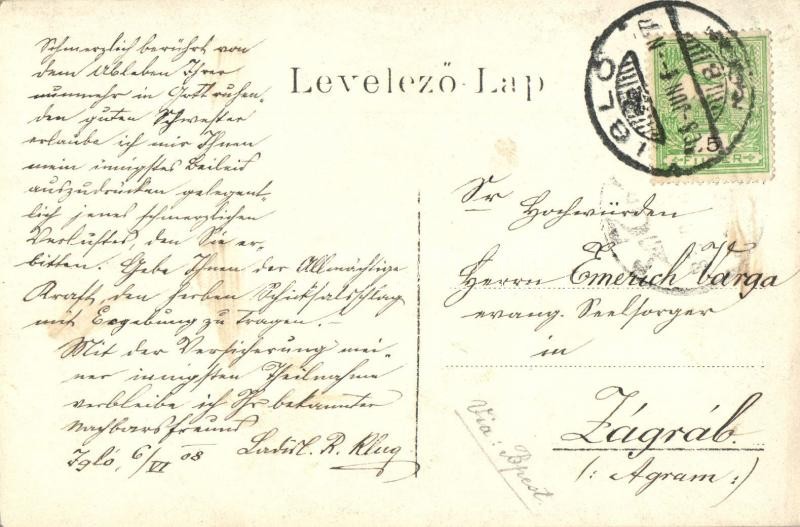 Levelező-Lap
IGLÓ
5
FILLÉR
Schmerzlich berührt von
dem Ableben Ihrer
nunmehr in Gott ruhen-
den guten Schwester
erlaube ich mir Ihnen
mein innigstes Beileid
auszudrücken gelegent-
lich jenes schmerzlichen
Verlustes, den Sie er-
litten. Gebe Ihnen der Allmächtige
Kraft, den herben Schicksalsschlag
mit Ergebung zu tragen. –
Mit der Versicherung mei-
ner innigsten Theilnahme
verbleibe ich Ihr bekannter
Nachbarsfreund
Igló, 6/VI 08 Ladisl. R. Klug
Sr Hochwürden
Herrn Emerich Varga
evang. Seelsorger
in
Zágráb.
(: Agram :)
Via: Bpest.